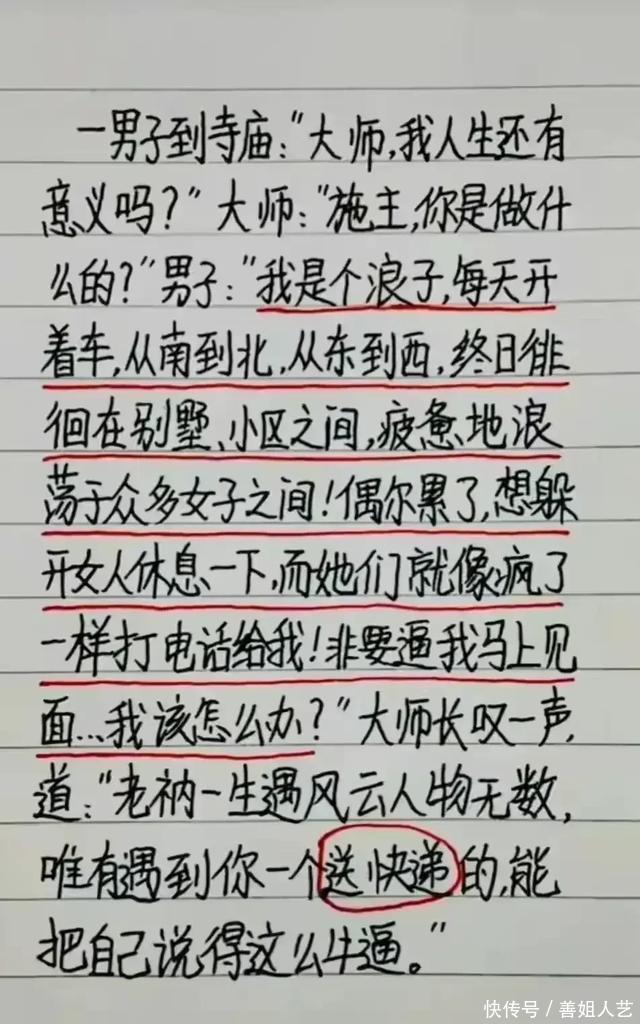 一男子到寺庙:"大师,我人生还有
意义吗?"大师:"施主,你是做什
么的?"男子:"我是个浪子,每天开
着车,从南到北,从东到西,终日徘
徊在别墅、小区之间,疲惫地浪
荡于众多女子之间!偶尔累了,想躲
开女人休息一下,而她们就像疯了
一样打电话给我!非要逼我马上见
面...我该怎么办?"大师长叹一声,
道:"老衲一生遇风云人物无数,
唯有遇到你一个送快递的,能
把自己说得这么牛逼。"
快传号/善姐人艺